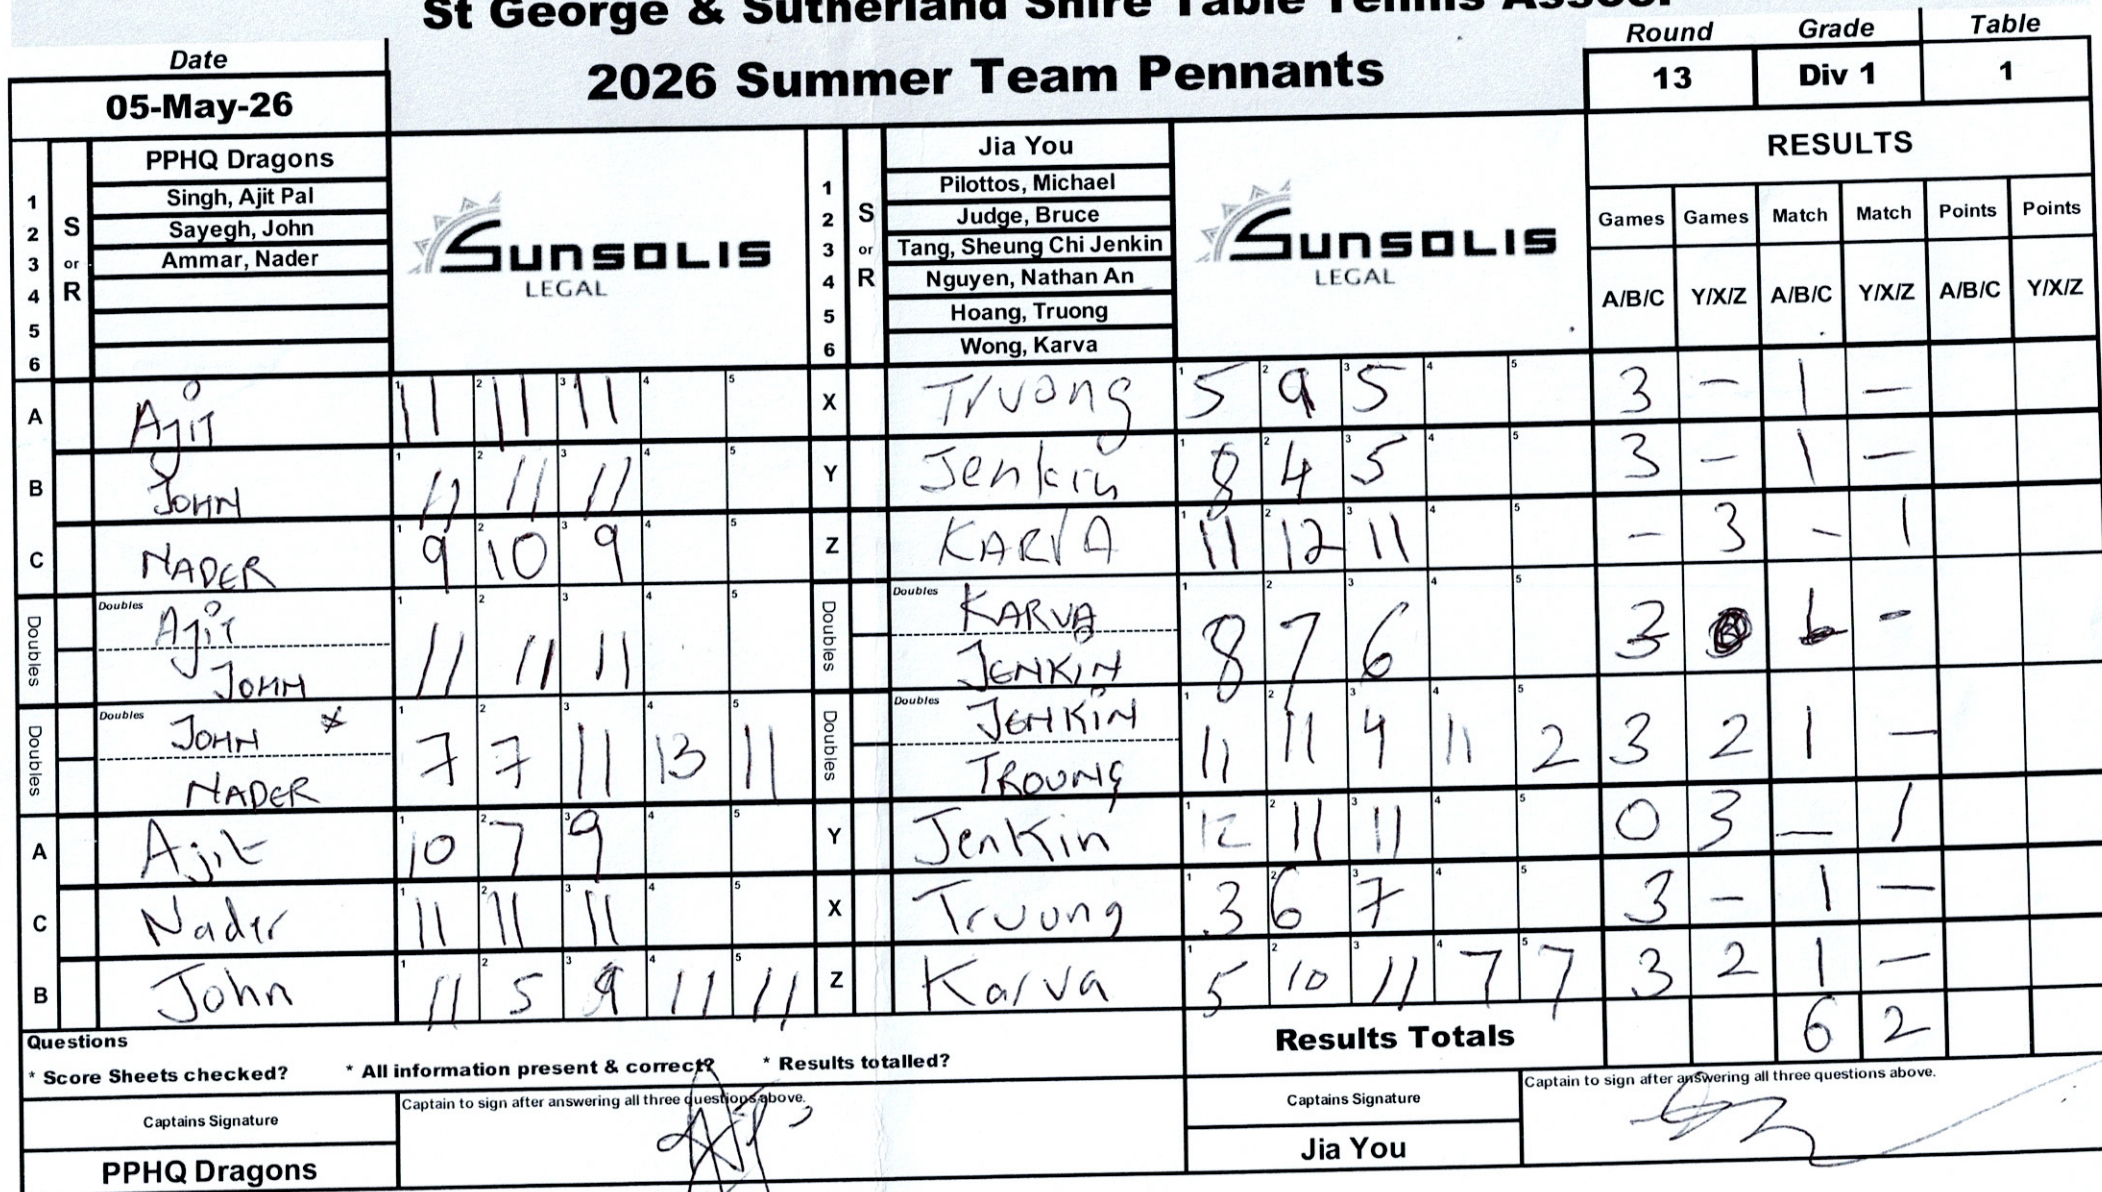 St George & Sutherland Shire Table Tennis Assoc.
2026 Summer Team Pennants
Date
05-May-26
Round Grade Table
13 Div 1 1
RESULTS
Games Games Match Match Points Points
A/B/C Y/X/Z A/B/C Y/X/Z A/B/C Y/X/Z
1 2 3 4 5 6
S or R
PPHQ Dragons
Singh, Ajit Pal
Sayegh, John
Ammar, Nader
SUNSOLIS
LEGAL
1 2 3 4 5 6
S or R
Jia You
Pilottos, Michael
Judge, Bruce
Tang, Sheung Chi Jenkin
Nguyen, Nathan An
Hoang, Truong
Wong, Karva
SUNSOLIS
LEGAL
A Ajit 11 11 11 X Truong 5 9 5 3 - 1 -
B JOHN 11 11 11 Y Jenkin 8 4 5 3 - 1 -
C NADER 9 10 9 Z KARVA 11 12 11 - 3 - 1
Doubles Doubles Ajit JOHN 11 11 11 Doubles Doubles KARVA JENKIN 8 7 6 3 1 -
Doubles Doubles JOHN NADER 7 7 11 13 11 Doubles Doubles JENKIN TROUNG 11 11 4 11 2 3 2 1 -
A Ajit 10 7 9 Y Jenkin 12 11 11 0 3 - 1
C Nader 11 11 11 X Truong 3 6 7 3 - 1 -
B John 11 5 9 11 11 Z Karva 5 10 11 7 7 3 2 1 -
Results Totals 6 2
Questions
* Score Sheets checked? * All information present & correct? * Results totalled?
Captains Signature
Captain to sign after answering all three questions above.
PPHQ Dragons
Captains Signature
Captain to sign after answering all three questions above.
Jia You